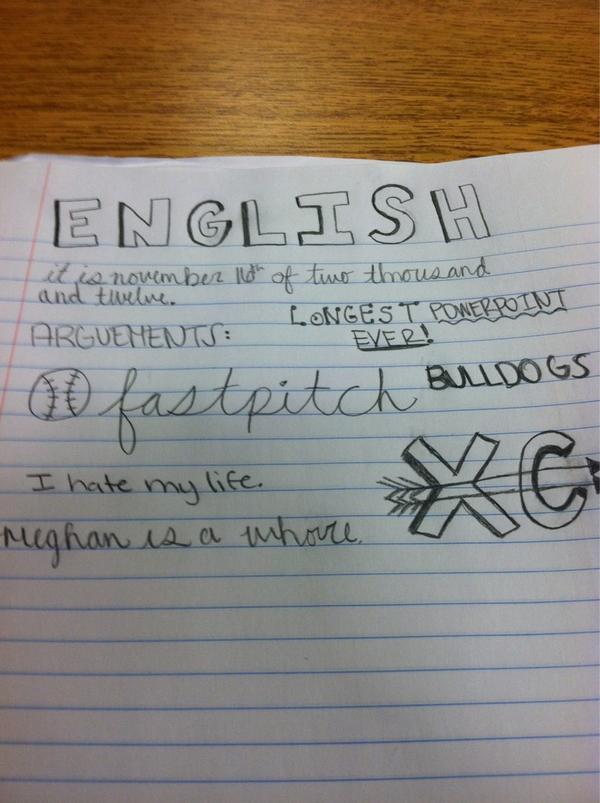 ENGLISH
it is november 16th of two thousand
and twelve.
LONGEST POWERPOINT
EVER!
ARGUEMENTS:
fastpitch
BULLDOGS
XC
I hate my life.
Meghan is a whore.